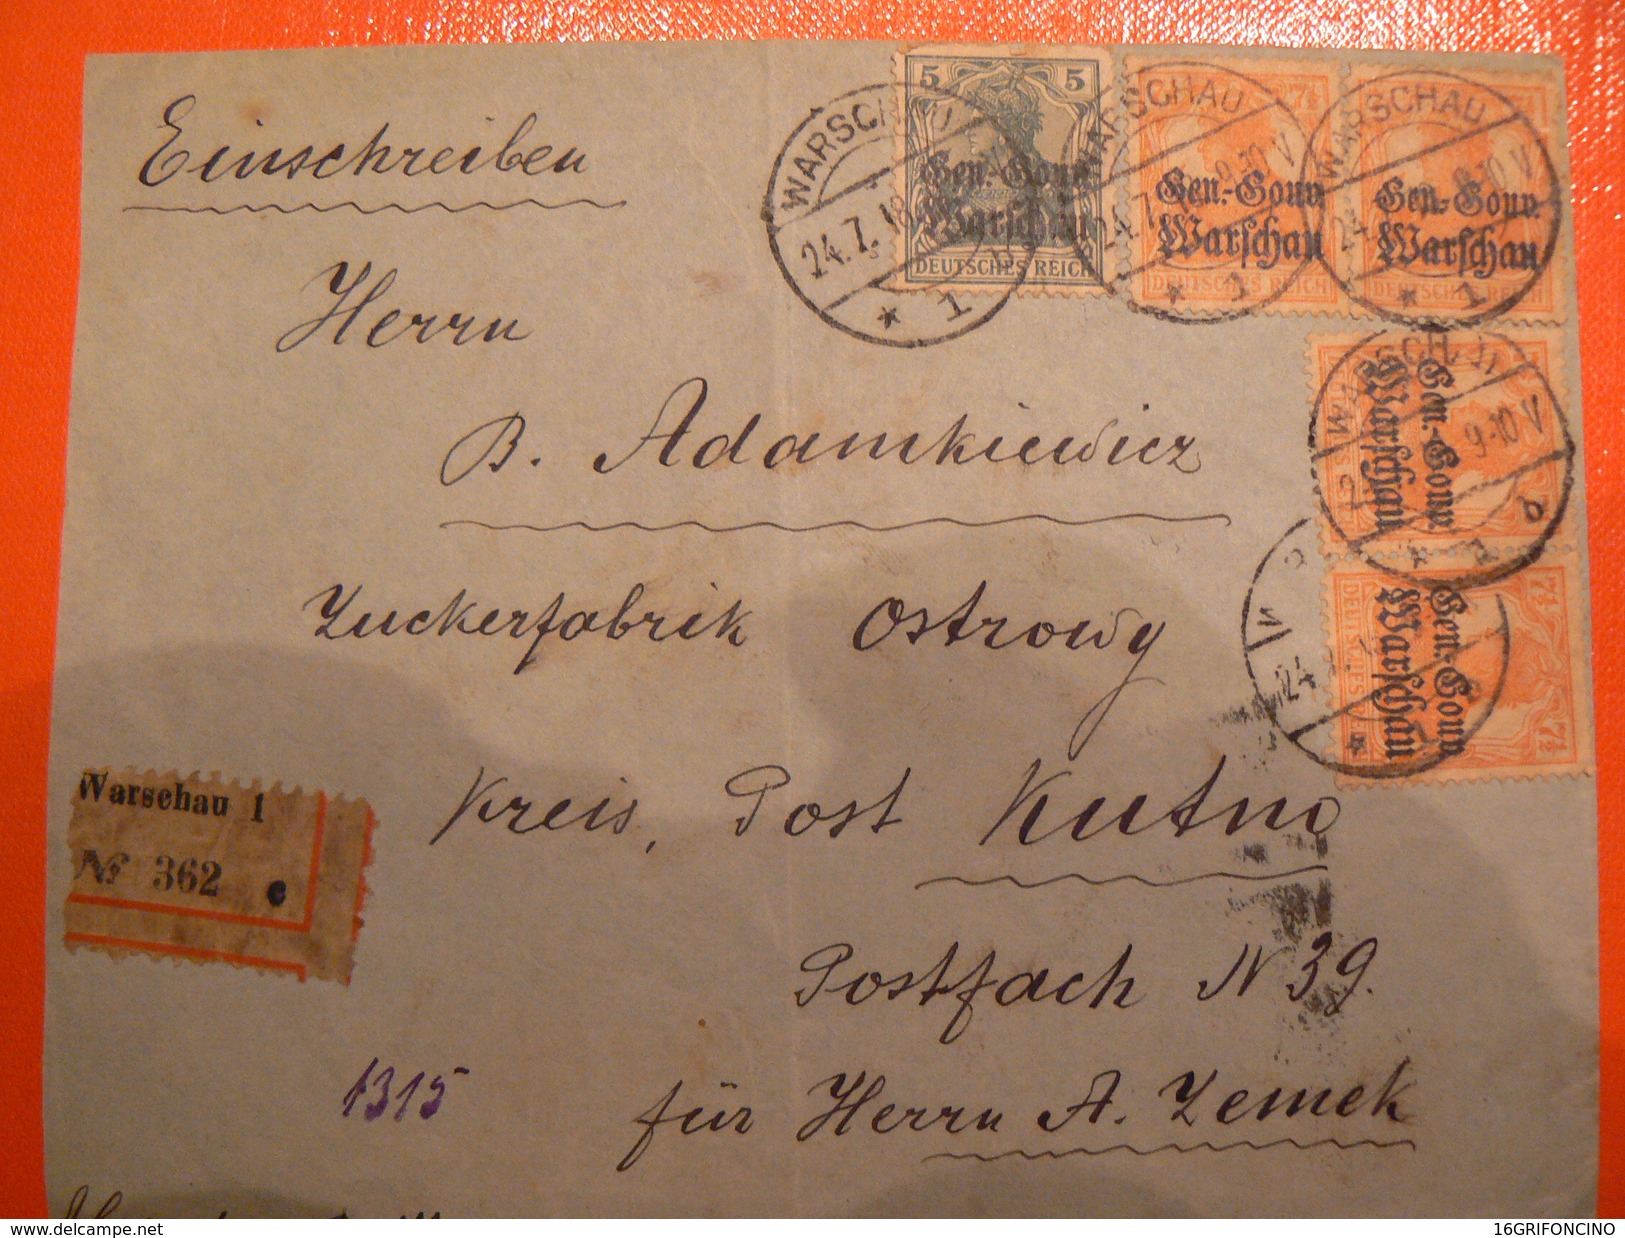 Einschreiben
5 5
Gen.-Gouv.
Warschau
DEUTSCHES REICH
WARSCHAU
24.7.18
* 1
7½
Gen.-Gouv.
Warschau
DEUTSCHES REICH
WARSCHAU
24.7
9-10 V
* 1
Gen.-Gouv.
Warschau
WARSCHAU
9-10 V
* 1
Gen.-Gouv.
Warschau
9-10 V
Gen.-Gouv.
Warschau
7½ 7½
24
Herrn
B. Adamkiewicz
Zuckerfabrik Ostrowy
Kreis, Post Kutno
Postfach N 39.
für Herrn A. Zemek
Warschau 1
№ 362 c
1315
delcampe.net
16GRIFONCINO